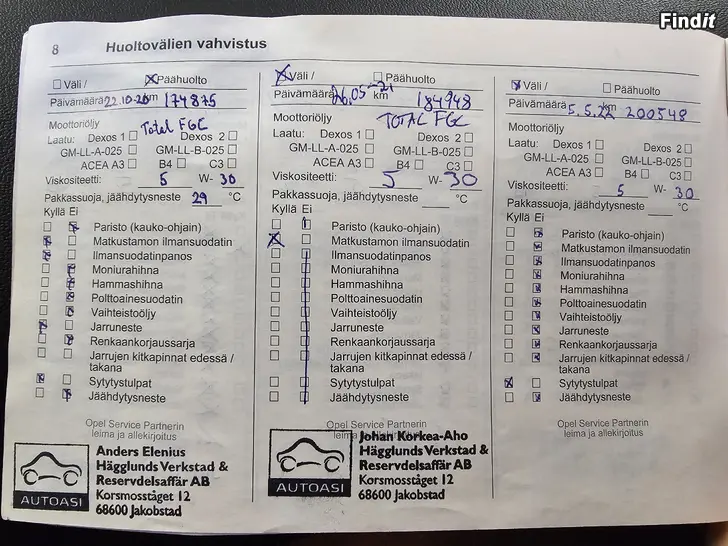 Findit
8 Huoltovälien vahvistus
Väli / Päähuolto
Päivämäärä 22.10-20 km 174875
Moottoriöljy Total FGC
Laatu: Dexos 1 Dexos 2
GM-LL-A-025 GM-LL-B-025
ACEA A3 B4 C3
Viskositeetti: 5 W- 30
Pakkassuoja, jäähdytysneste 29 °C
Kyllä Ei
Paristo (kauko-ohjain)
Matkustamon ilmansuodatin
Ilmansuodatinpanos
Moniurahihna
Hammashihna
Polttoainesuodatin
Vaihteistoöljy
Jarruneste
Renkaankorjaussarja
Jarrujen kitkapinnat edessä /
takana
Sytytystulpat
Jäähdytysneste
Opel Service Partnerin
leima ja allekirjoitus
AUTOASI
Anders Elenius
Hägglunds Verkstad &
Reservdelsaffär AB
Korsmosståget 12
68600 Jakobstad
Väli / Päähuolto
Päivämäärä 26.05-21 km 184948
Moottoriöljy TOTAL FGC
Laatu: Dexos 1 Dexos 2
GM-LL-A-025 GM-LL-B-025
ACEA A3 B4 C3
Viskositeetti: 5 W- 30
Pakkassuoja, jäähdytysneste °C
Kyllä Ei
Paristo (kauko-ohjain)
Matkustamon ilmansuodatin
Ilmansuodatinpanos
Moniurahihna
Hammashihna
Polttoainesuodatin
Vaihteistoöljy
Jarruneste
Renkaankorjaussarja
Jarrujen kitkapinnat edessä /
takana
Sytytystulpat
Jäähdytysneste
Opel Service Partnerin
leima ja allekirjoitus
AUTOASI
Johan Korkea-Aho
Hägglunds Verkstad &
Reservdelsaffär AB
Korsmosståget 12
68600 Jakobstad
Väli / Päähuolto
Päivämäärä 5.5.22 200548
Moottoriöljy
Laatu: Dexos 1 Dexos 2
GM-LL-A-025 GM-LL-B-025
ACEA A3 B4 C3
Viskositeetti: 5 W- 30
Pakkassuoja, jäähdytysneste °C
Kyllä Ei
Paristo (kauko-ohjain)
Matkustamon ilmansuodatin
Ilmansuodatinpanos
Moniurahihna
Hammashihna
Polttoainesuodatin
Vaihteistoöljy
Jarruneste
Renkaankorjaussarja
Jarrujen kitkapinnat edessä /
takana
Sytytystulpat
Jäähdytysneste
Opel Service Partnerin
leima ja allekirjoitus